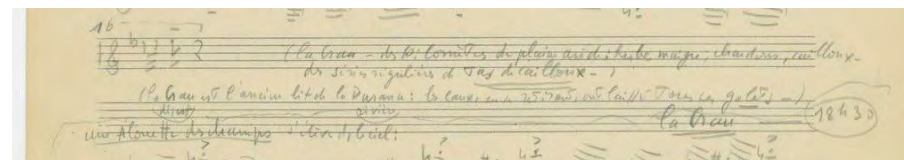 16
(la Crau – des Kilomètres de plaine aride: herbe maigre, chardons, cailloux –
des séries régulières de Tas de cailloux – )
(la Crau est l'ancien lit de la Durance: les eaux, en se retirant, ont laissé Tous ces galets –)
disent rivière
la Crau 18h30
une Alouette des champs s'élève, ciel: